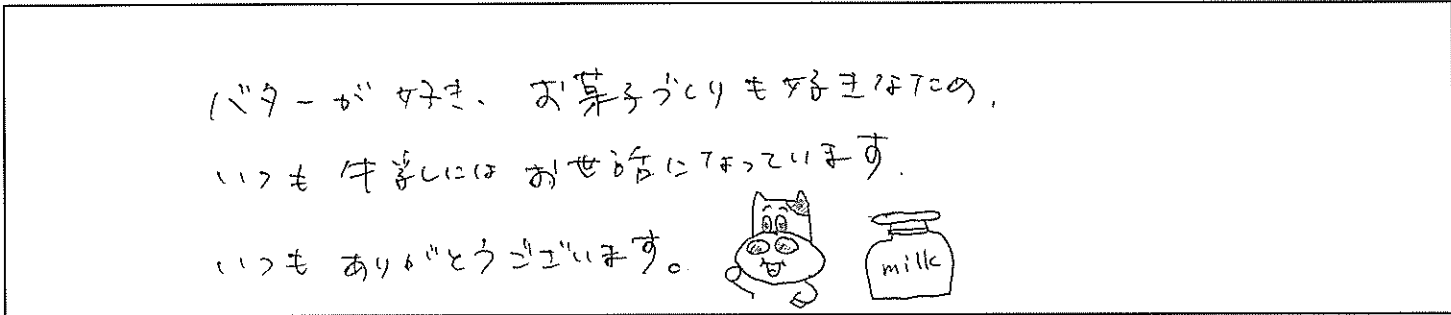 バターが好き、お菓子づくりも好きなため、
いつも牛乳にはお世話になっています。
いつもありがとうございます。
milk